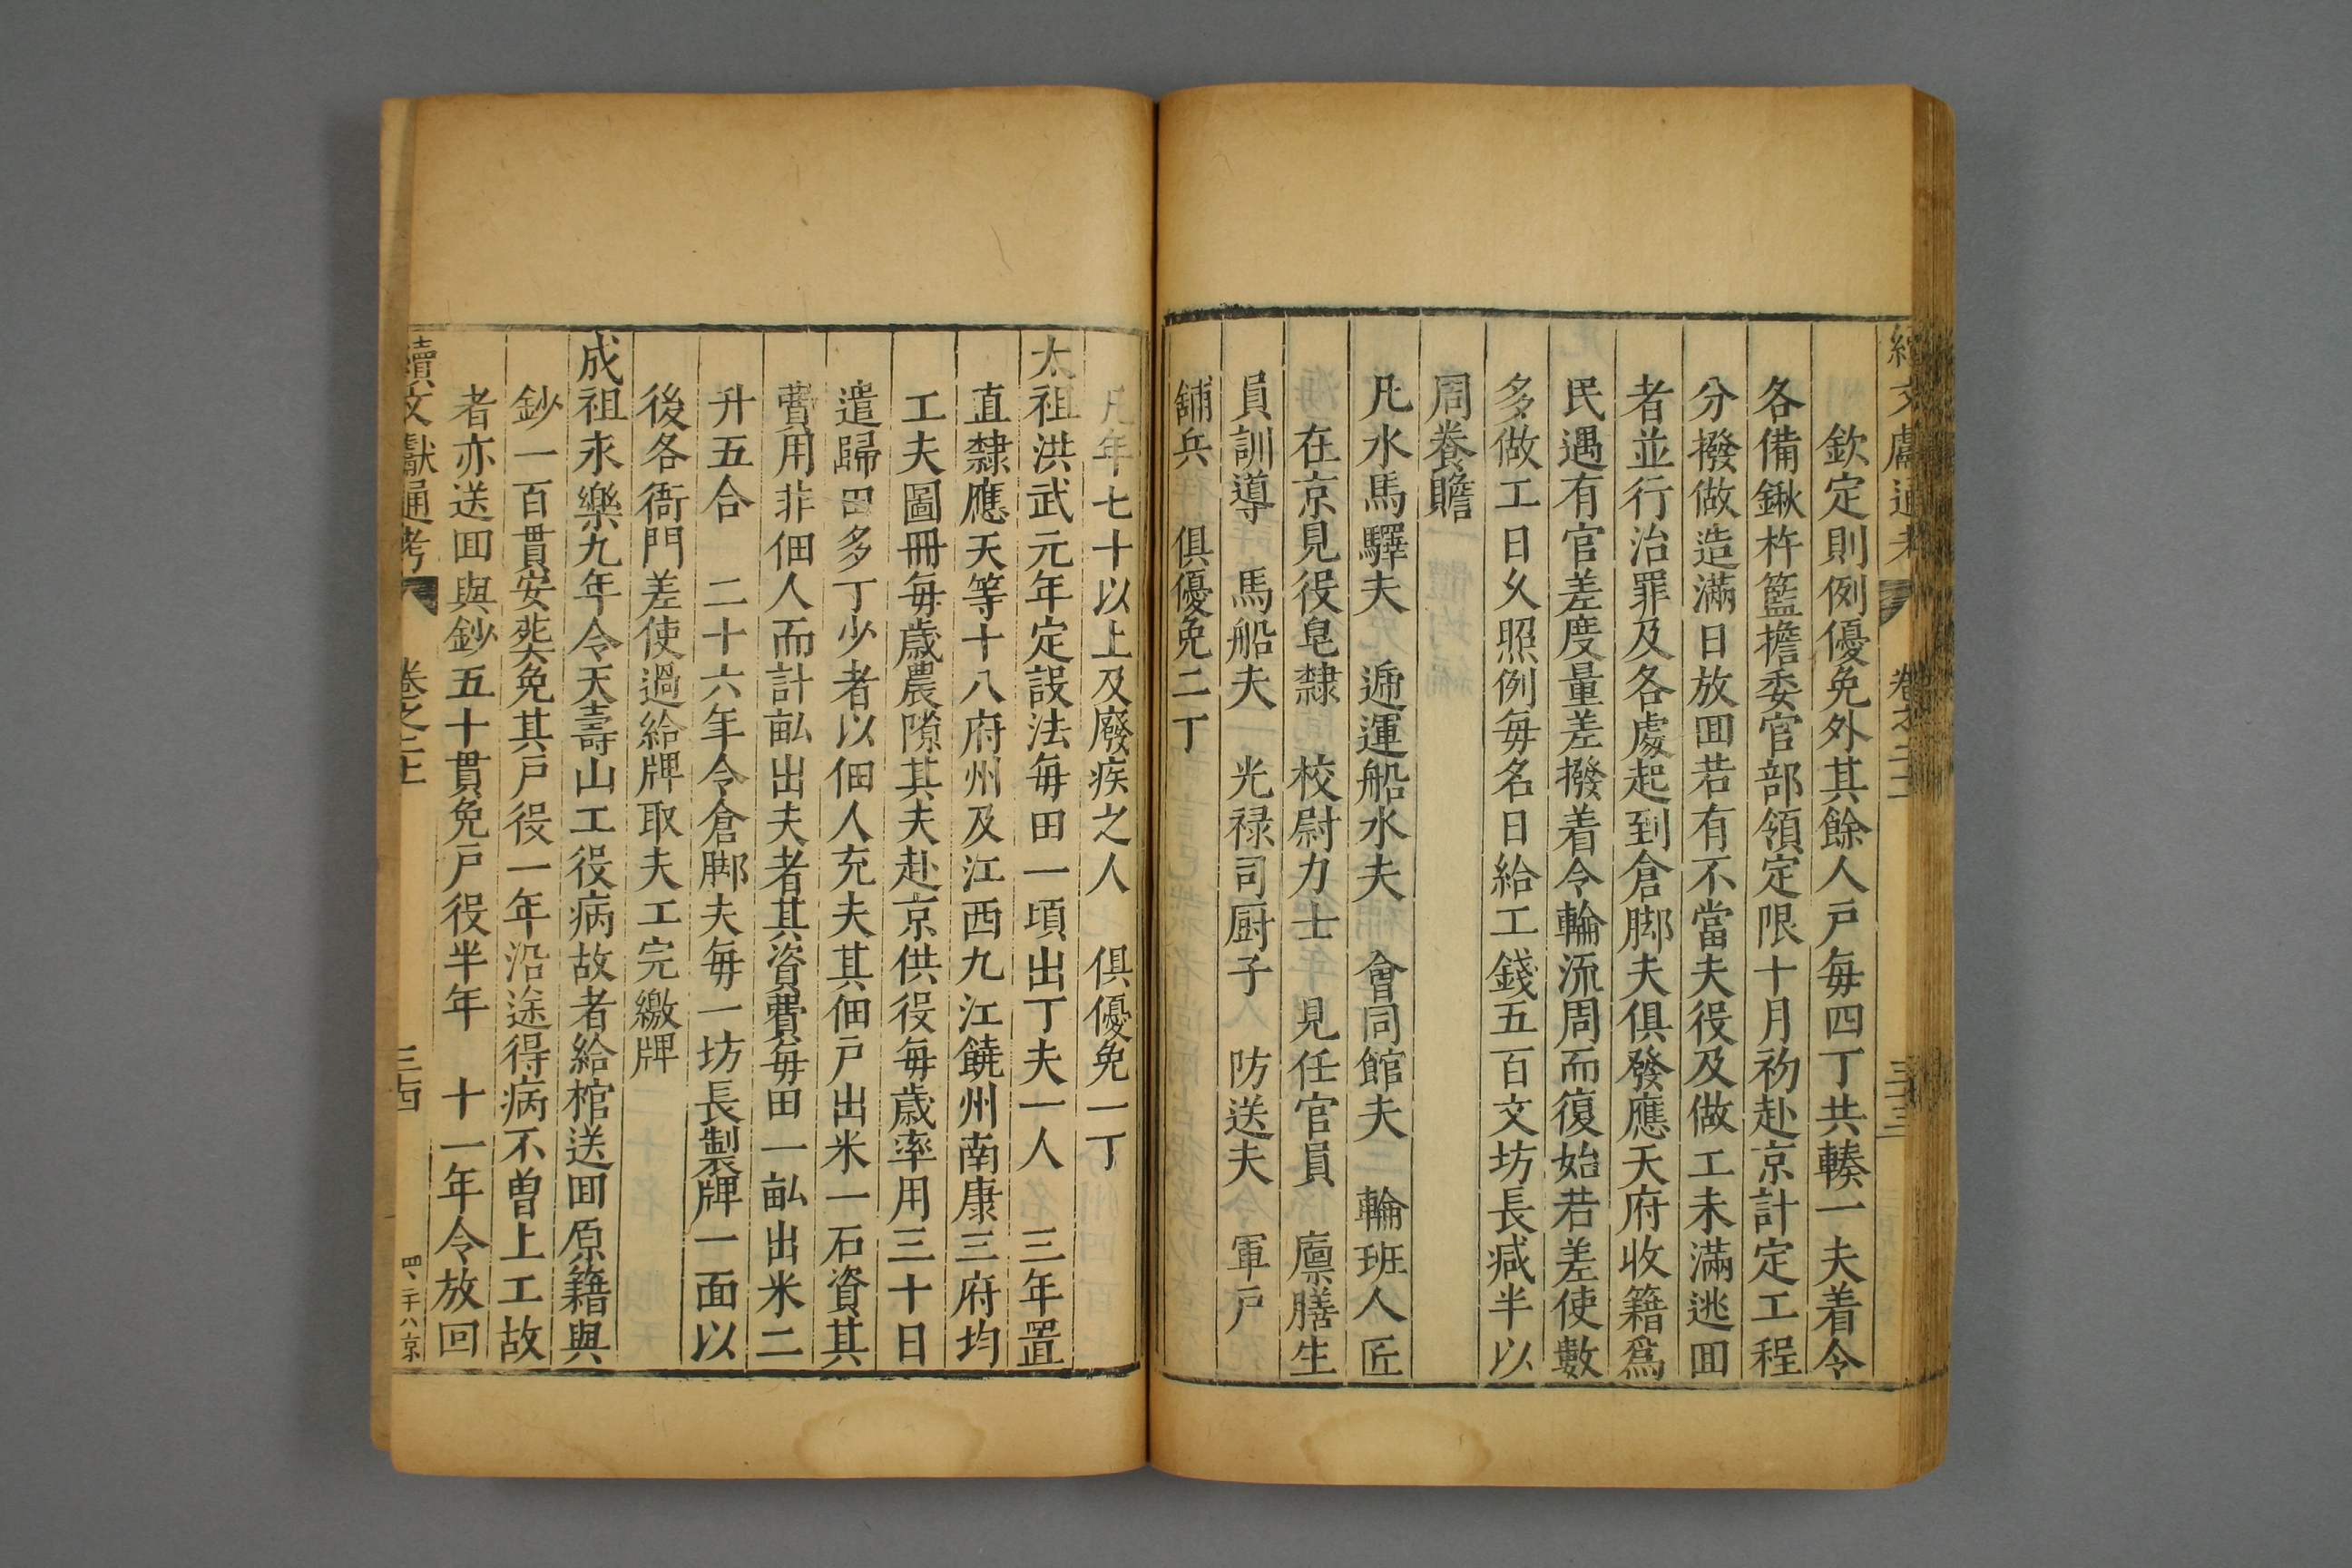 續文獻通考 卷之二十 三十三
欽定則例優免外其餘人戶每四丁共輳一夫着令
各備鍬杵籃擔委官部領定限十月初赴京計定工程
分撥做造滿日放囬若有不當夫役及做工未滿逃囬
者並行治罪及各處起到倉脚夫俱發應天府收籍爲
民遇有官差度量差撥着令輪流周而復始若差使數
多做工日久照例每名日給工錢五百文坊長减半以
周養贍
凡水馬驛夫 遞運船水夫 會同館夫 輪班人匠
在京見役皂隸 校尉力士 見任官員 廪膳生
員訓導 馬船夫 光禄司厨子 防送夫 軍戶
舖兵 俱優免二丁
凡年七十以上及廢疾之人 俱優免一丁
太祖洪武元年定設法每田一頃出丁夫一人 三年置
直隸應天等十八府州及江西九江饒州南康三府均
工夫圖冊每歲農隙其夫赴京供役每歲率用三十日
遣歸田多丁少者以佃人充夫其佃戶出米一石資其
費用非佃人而計畆出夫者其資費每田一畆出米二
升五合 二十六年令倉脚夫每一坊長製牌一面以
後各衙門差使過給牌取夫工完繳牌
成祖永樂九年令天壽山工役病故者給棺送囬原籍與
鈔一百貫安塟免其戶役一年沿途得病不曾上工故
者亦送囬與鈔五十貫免戶役半年 十一年令放回
續文獻通考 卷之二十 三十四